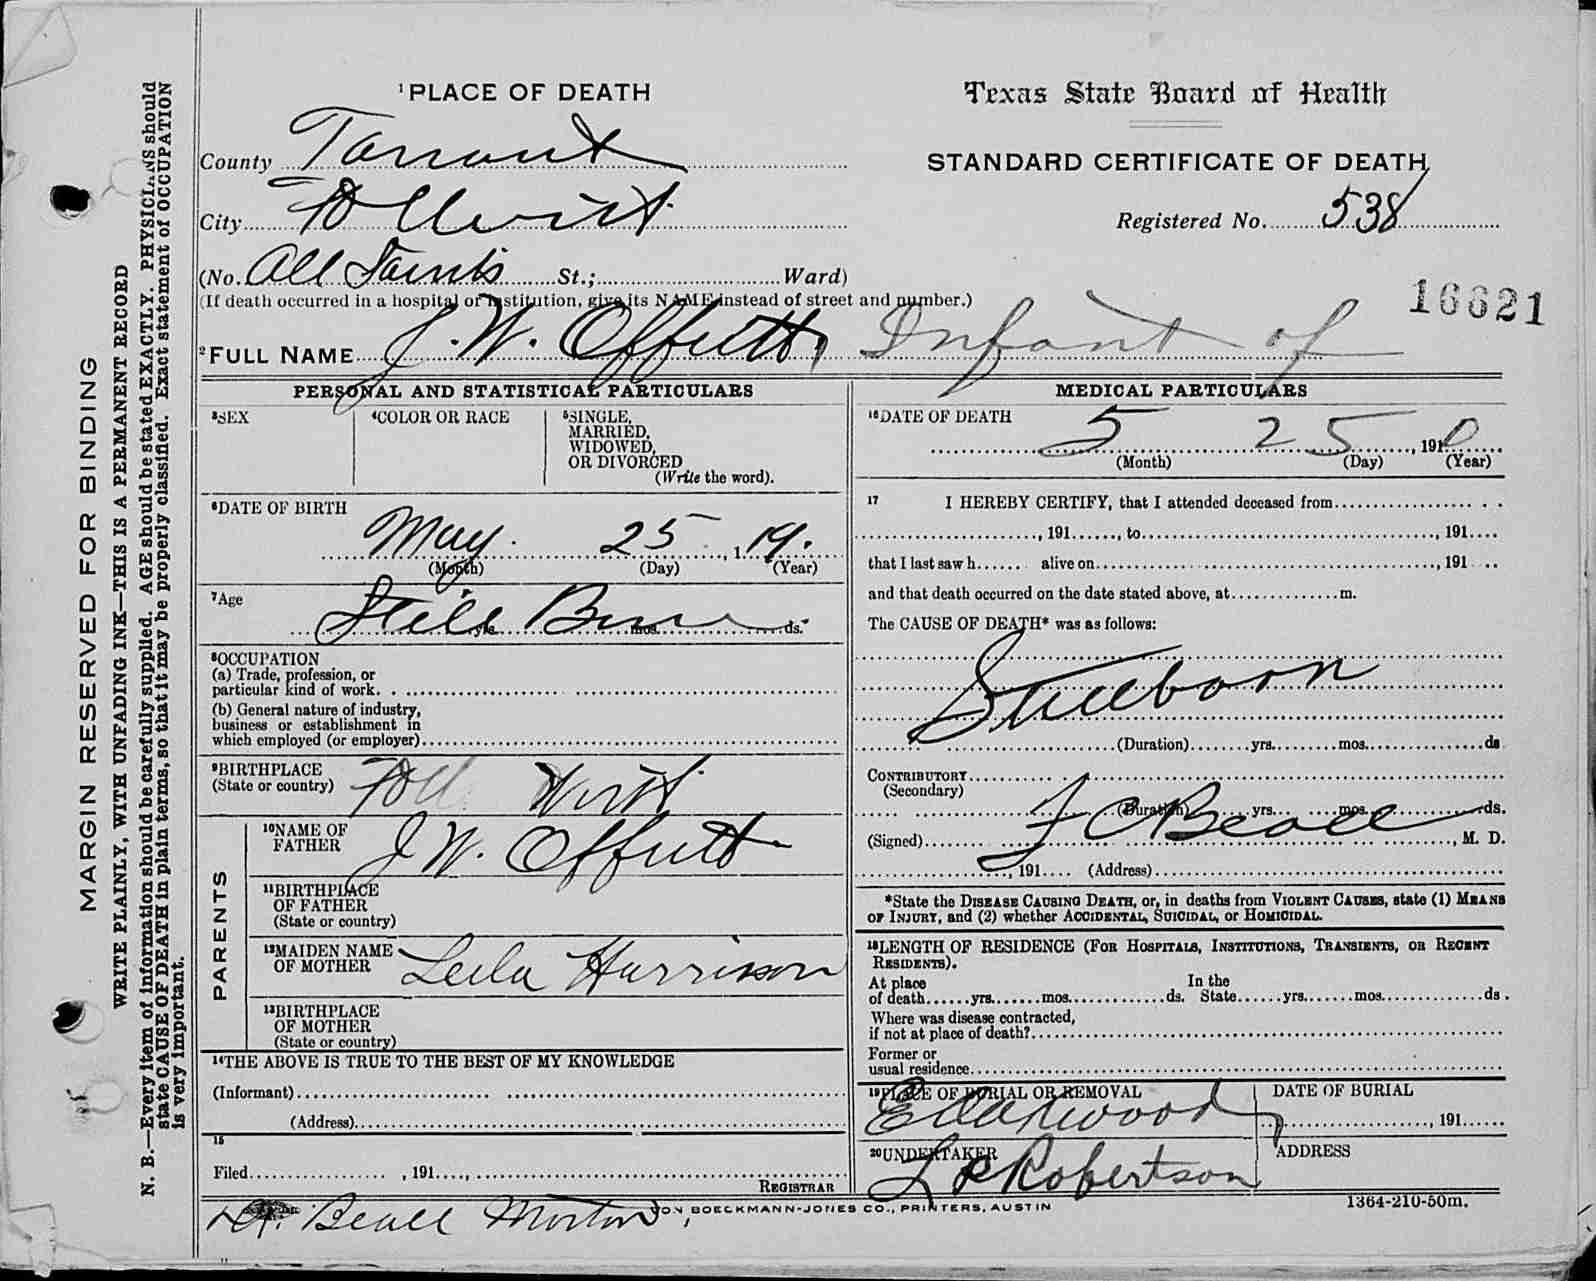 MARGIN RESERVED FOR BINDING
WRITE PLAINLY, WITH UNFADING INK—THIS IS A PERMANENT RECORD
N. B.—Every item of information should be carefully supplied. AGE should be stated EXACTLY. PHYSICIANS should
state CAUSE OF DEATH in plain terms, so that it may be properly classified. Exact statement of OCCUPATION
is very important.
1 PLACE OF DEATH
County Tarrant
City
(No. All Saints St.; Ward)
(If death occurred in a hospital or institution, give its NAME instead of street and number.)
Texas State Board of Health
STANDARD CERTIFICATE OF DEATH
Registered No. 538
16621
2 FULL NAME J. W. Offutt, Infant of
PERSONAL AND STATISTICAL PARTICULARS
3 SEX
4 COLOR OR RACE
5 SINGLE,
MARRIED,
WIDOWED,
OR DIVORCED
(Write the word).
6 DATE OF BIRTH
May 25, 1 19.
(Month) (Day) (Year)
7 Age
Still Born yrs. mos. ds.
8 OCCUPATION
(a) Trade, profession, or
particular kind of work.
(b) General nature of industry,
business or establishment in
which employed (or employer)
9 BIRTHPLACE
(State or country) Worth
PARENTS
10 NAME OF
FATHER J W. Offutt
11 BIRTHPLACE
OF FATHER
(State or country)
12 MAIDEN NAME
OF MOTHER Leila Harrison
13 BIRTHPLACE
OF MOTHER
(State or country)
14 THE ABOVE IS TRUE TO THE BEST OF MY KNOWLEDGE
(Informant)
(Address)
15
Filed , 191 ,
REGISTRAR
MEDICAL PARTICULARS
16 DATE OF DEATH
5 25, 1910
(Month) (Day) (Year)
17 I HEREBY CERTIFY, that I attended deceased from
, 191 , to , 191
that I last saw h alive on , 191
and that death occurred on the date stated above, at m.
The CAUSE OF DEATH* was as follows:
Stillborn
(Duration) yrs. mos. ds
CONTRIBUTORY
(Secondary)
(Duration) yrs. mos. ds.
(Signed) F C Beall, M. D.
, 191 (Address)
*State the DISEASE CAUSING DEATH, or, in deaths from VIOLENT CAUSES, state (1) MEANS
OF INJURY, and (2) whether ACCIDENTAL, SUICIDAL, or HOMICIDAL.
18 LENGTH OF RESIDENCE (FOR HOSPITALS, INSTITUTIONS, TRANSIENTS, OR RECENT
RESIDENTS).
At place In the
of death yrs. mos. ds. State yrs. mos. ds.
Where was disease contracted,
if not at place of death?
Former or
usual residence
19 PLACE OF BURIAL OR REMOVAL
DATE OF BURIAL
, 191
20 UNDERTAKER
Robertson
ADDRESS
Dr. Beall Morton
VON BOECKMANN-JONES CO., PRINTERS, AUSTIN
1364-210-50m.